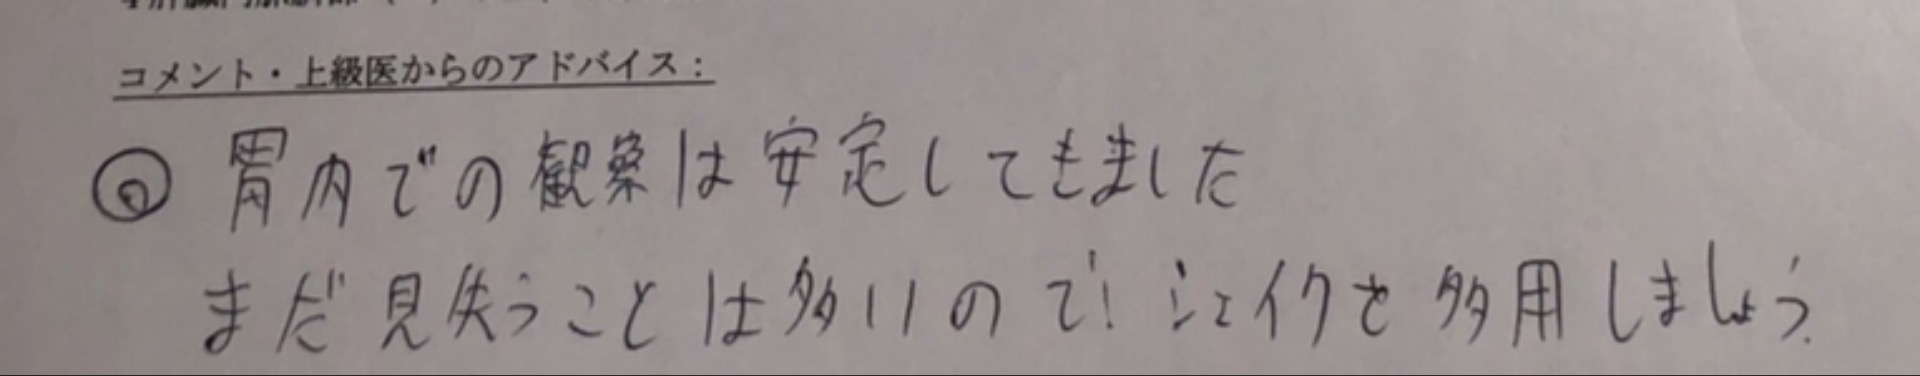 コメント・上級医からのアドバイス：
胃内での観察は安定してきました
まだ見失うことは多いので シェイクを多用しましょう.